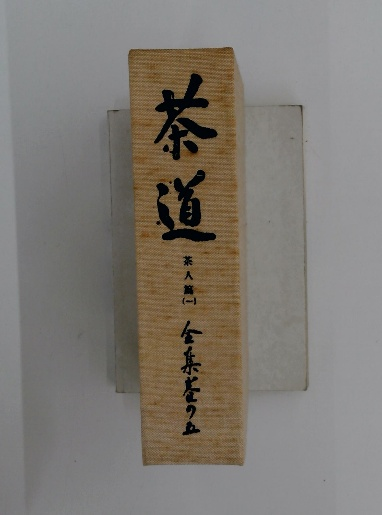 茶道
茶人篇
(一)
全集巻の五